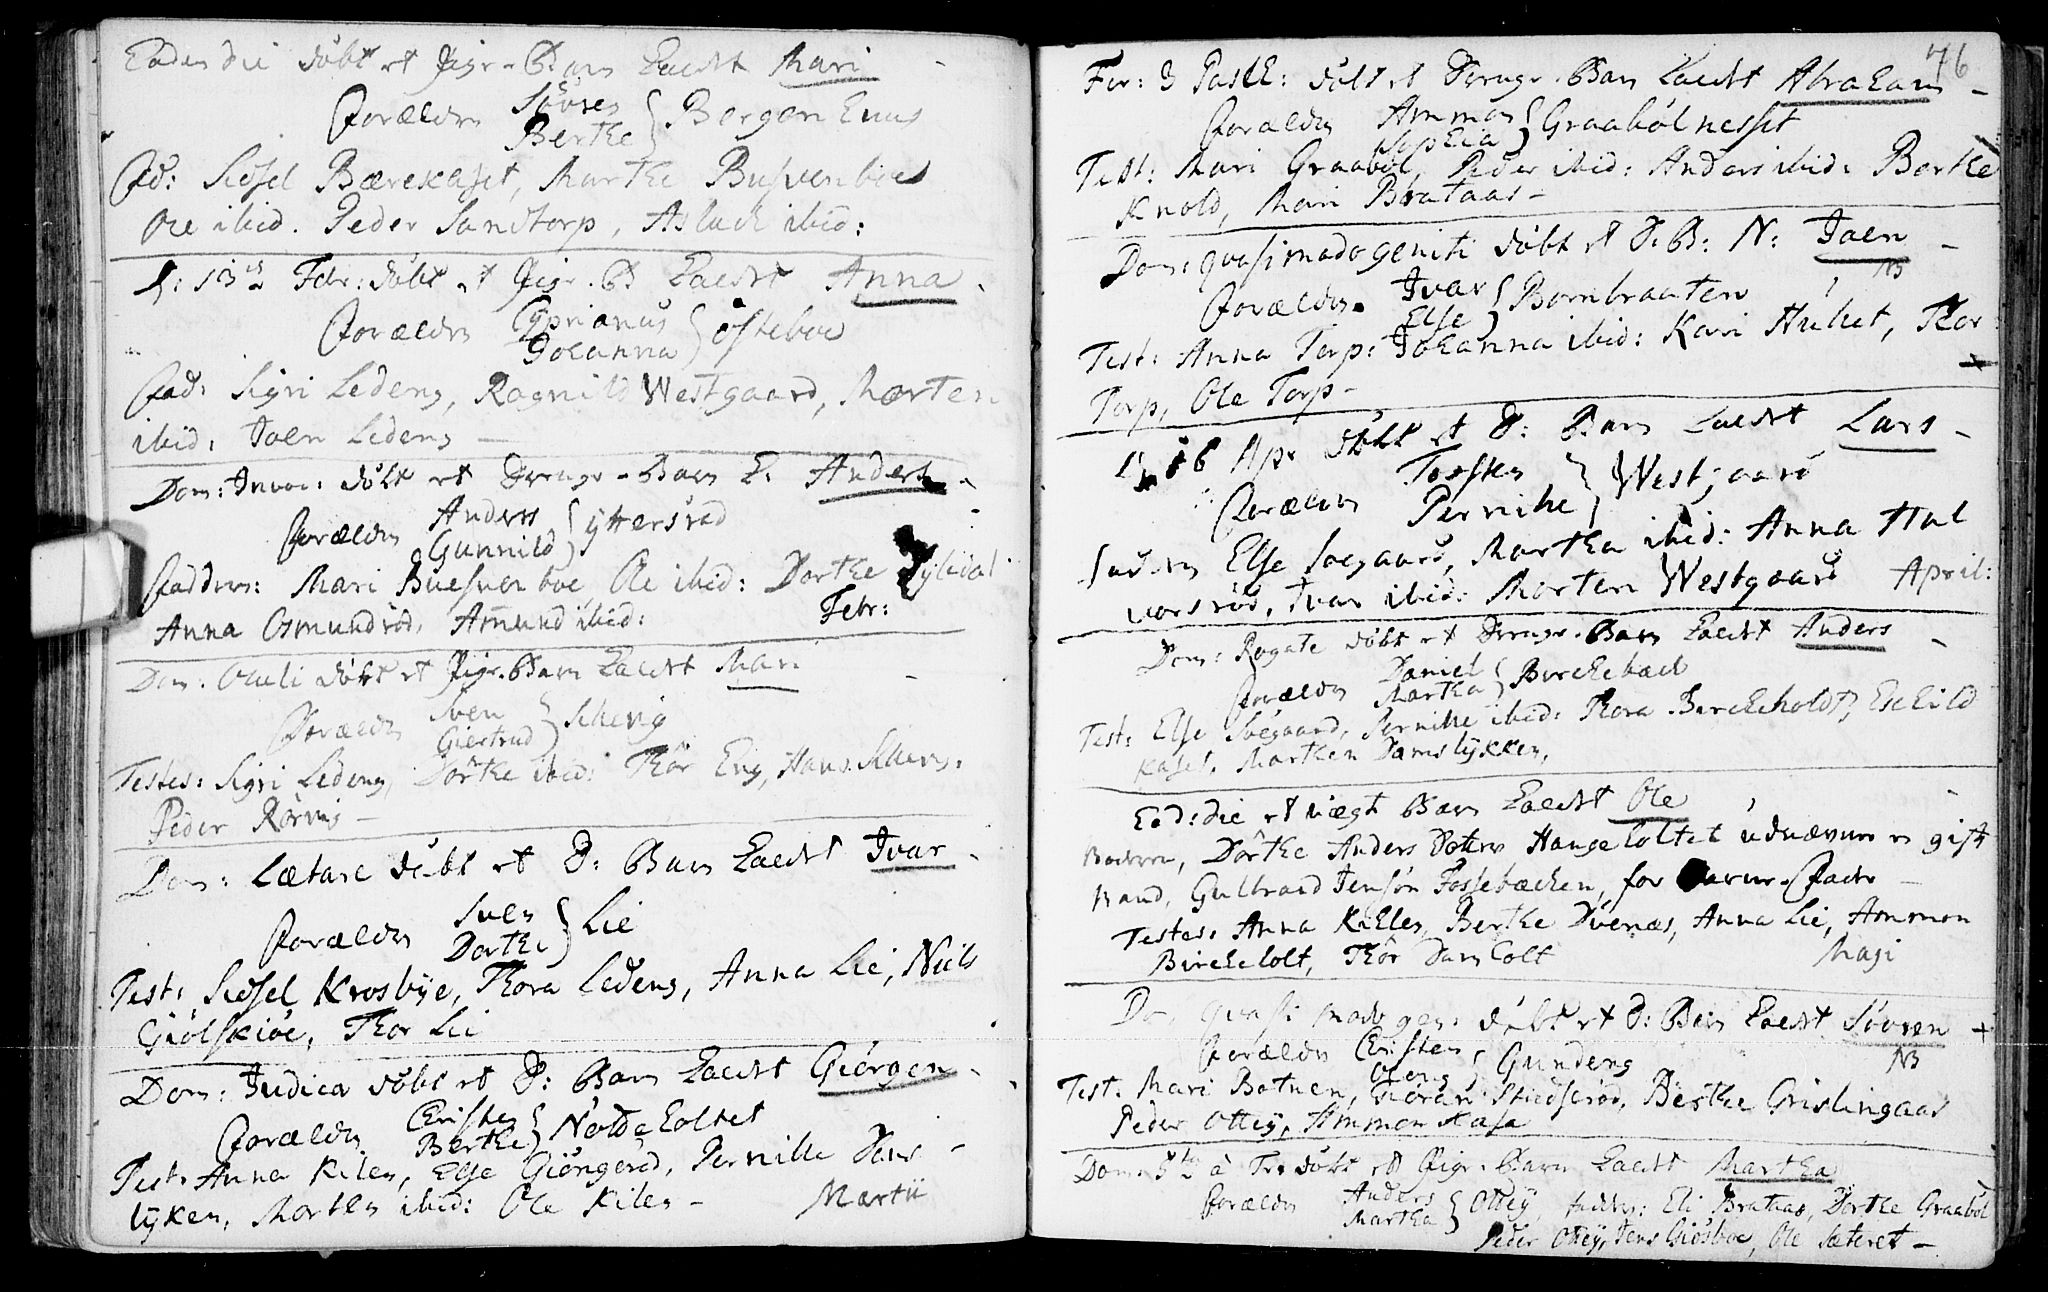 Eodem die döbt et Pige-Barn kaldt Mari
Forældre Sören
Berthe } Bergen Enus
Fad: Sidsel Bærekaset, Marthe Busvenboe
Ole ibid. Peder Sandtorp, Aslach ibid:
D: 13 Febr: döbt et Pige-B kaldt Anna
Forældre Cyprianus
Johanna } Östeboe
Fad: Sigri Ledeng, Ragnild Westgaard, Morten
ibid: Joen Ledeng
Dom: Invoc: döbt et Drenge-Barn k. Anders
Forældre Anders
Gunnild } Yttersröd
Faddere: Mari Buesvenboe, Ole ibid: Dorthe
Anna Osmundröd, Amund ibid: Febr:
Dom. Oculi döbt et Pige-Barn kaldt Mari
Forældre Sven
Giertrud } Scheug
Testes: Sigri Ledeng, Dorthe ibid: Thör Eng, Hans Scheug.
Peder Rörvig
Dom: Lætare döbt et D: Barn kaldt Ivar
Forældre Sven
Dorthe } Lie
Test: Sidsel Krosbye, Thora Ledeng, Anna Lie, Niels
Giölskiöe, Thor Lie
Dom: Judica döbt et D: Barn kaldt Giörgen
Forældre Christen
Berthe } Nötteholtet
Test: Anna Kilen, Else Giöngeröd, Pernille Dams
lyken, Morten ibid: Ole Kilen - Martii
76
Fer: 3 Pasch: döbt et Drenge-Barn kaldt Abraham
Forældre Ammon
Sophia } Graabölnesset
Test: Mari Graaböl, Peder ibid: Anders ibid: Berthe
Knold, Mari Brataas
Dom: qvasimodogeniti döbt et D. B: N: Joen
NB
Forældre Ivar
Else } Bornbraaten
Test: Anna Torp: Johanna ibid: Kari Huket, Thor
Torp, Ole Torp
D 16 Apr döbt et D: Barn kaldt Lars
Forældre Torsten
Pernike } Westgaard
Faddere Else Soegaard, Martha ibid: Anna Hal
vorsröd, Ivar ibid: Morten Westgaard April:
Dom: Rogate döbt et Drenge-Barn kaldt Anders
Forældre Daniel
Martha } Berchebæch
Test: Else Soegaard, Pernille ibid: Thora Bircheholdt, Eschild
Kaset, Marthen Damslykken,
Eod: die et uægte Barn kaldt Ole
Moderen, Dorthe Anders Dotter Haugeholtet udnævnte en gift
Mand, Gulbrand Jensön Fossebæchen, for Barne-Fader
Testes: Anna Kihlen, Berthe Duenæs, Anna Lie, Ammon
Bircheholt, Thör Damholt Maji
Do qvasi modogen: döbt et D: Barn kaldt Sövren +
NB
Forældre Christen
} Gundeng
Test: Mari Botnen, Giöran Studseröd, Berthe Grislingaas
Peder Ottey, Ammon Kasa
Dom. 5 à Tr: döbt et Pige-Barn kaldt Martha
Forældre Anders
Martha } Ottey fadder: Eli Brataas, Dorthe Graaböl
Peder Ottey, Jens Giösboe, Ole Sæteret